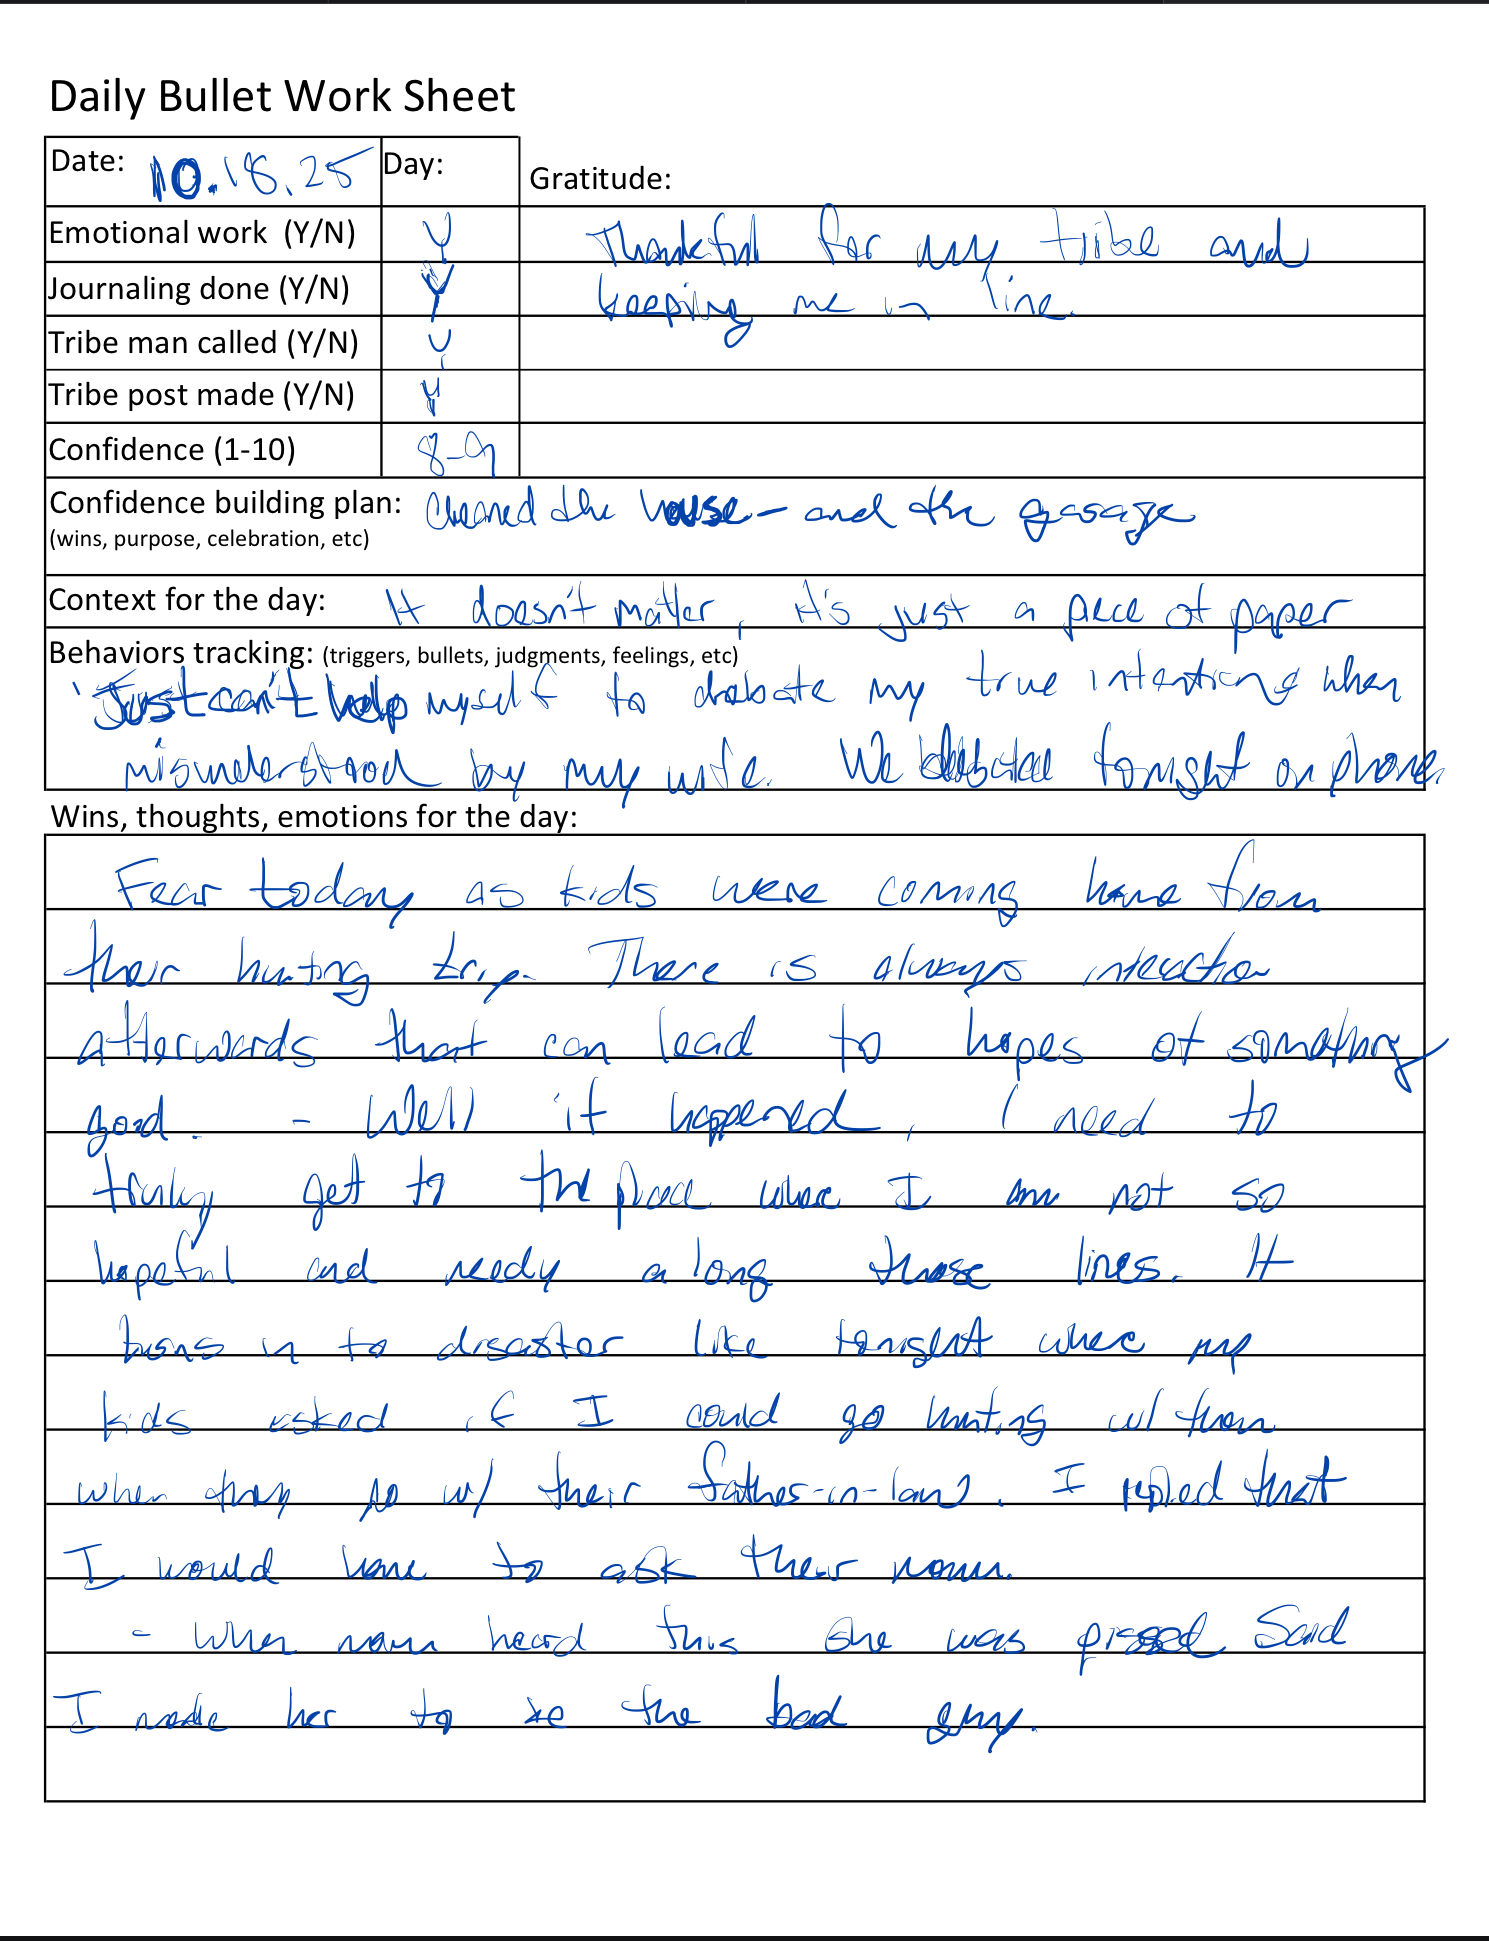 Daily Bullet Work Sheet
Date: 10.18.25 Day:
Gratitude:
Emotional work (Y/N) Y
Thankful for my tribe and
Journaling done (Y/N) Y
keeping me in line.
Tribe man called (Y/N) Y
Tribe post made (Y/N) Y
Confidence (1-10) 8-9
Confidence building plan: Cleaned the house - and the garage
(wins, purpose, celebration, etc)
Context for the day: It doesn't matter, it's just a piece of paper
Behaviors tracking: (triggers, bullets, judgments, feelings, etc)
Just can't help myself to debate my true intentions when
misunderstood by my wife. We debated tonight on phone.
Wins, thoughts, emotions for the day:
Fear today as kids were coming home from
their hunting trip. There is always interaction
afterwards that can lead to hopes of something
good. - Well it happened, I need to
truly get to the place where I am not so
hopeful and needy along those lines. It
turns in to disaster like tonight where my
kids asked if I could go hunting w/ them
when they go w/ their father-in-law. I replied that
I would have to ask their mom.
- When mom heard this she was pissed. Said
I made her to be the bad guy.